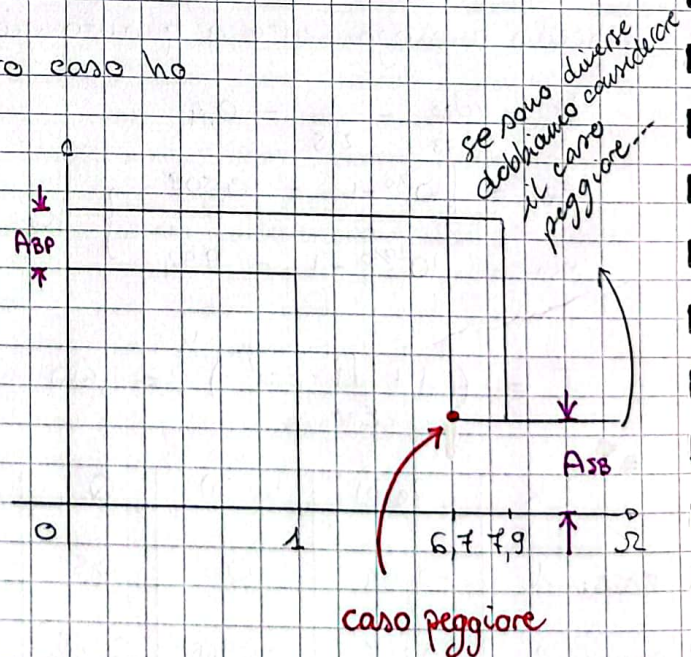 o caso ho
se sono diverse
dobbiamo considerare
il caso
peggiore---
ABP
ASB
0
1
6,7
7,9
Ω
caso peggiore